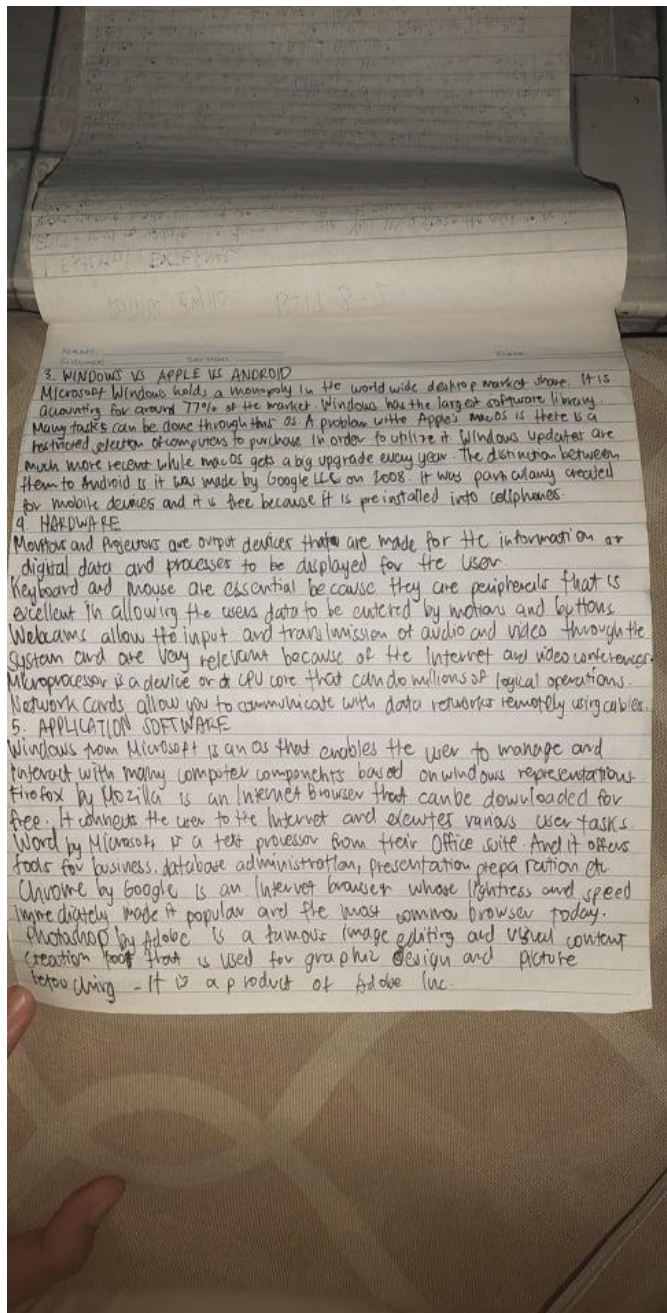 NAME:
Subject: Section: Date:
3. WINDOWS VS APPLE VS ANDROID
Microsoft Windows holds a monopoly in the world wide desktop market share. It is
accounting for around 77% of the market. Windows has the largest software library.
Many tasks can be done through this OS. A problem with Apple's macOS is there is a
restricted selection of computers to purchase in order to utilize it Windows updates are
much more recent while macOS gets a big upgrade every year. The distinction between
them to Android is it was made by Google LLC on 2008. It was particularly created
for mobile devices and it is free because it is preinstalled into cellphones.
4. HARDWARE
Monitors and Projectors are output devices that are made for the information or
digital data and processes to be displayed for the user.
Keyboard and mouse are essential because they are peripherals that is
excellent in allowing the users data to be entered by motions and buttons.
Webcams allow the input and transmission of audio and video through the
system and are very relevant because of the Internet and video conferences.
Microprocessor is a device or a CPU core that can do millions of logical operations.
Network Cards allow you to communicate with data networks remotely using cables.
5. APPLICATION SOFTWARE
Windows from Microsoft is an OS that enables the user to manage and
interact with many computer components based on windows representations.
Firefox by Mozilla is an Internet Browser that can be downloaded for
free. It connects the user to the Internet and executes various user tasks.
Word by Microsoft is a text processor from their Office suite. And it offers
tools for business, database administration, presentation preparation etc.
Chrome by Google is an Internet browser whose lightness and speed
immediately made it popular and the most common browser today.
Photoshop by Adobe is a famous image editing and visual content
creation tool that is used for graphic design and picture
retouching - It is a product of Adobe Inc.